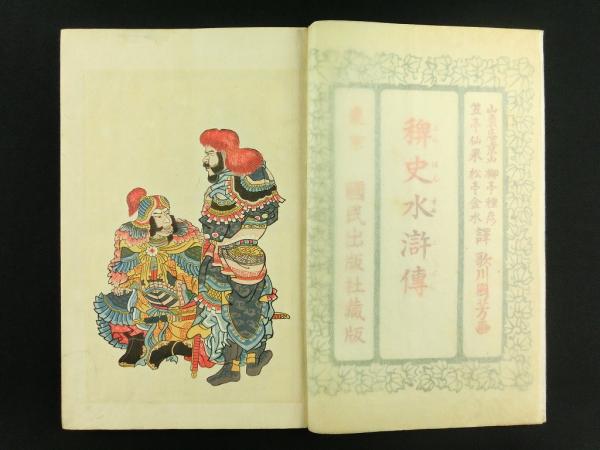 山東庵京山 柳亭種彦
笠亭仙果 松亭金水 譯 歌川國芳画
稗史水滸傳
東京 國民出版社藏版